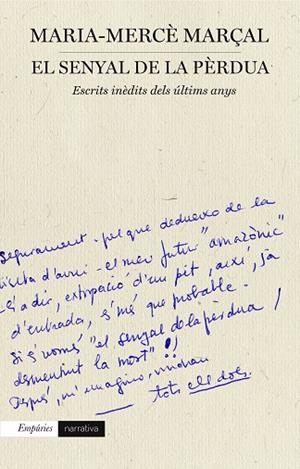 MARIA-MERCÈ MARÇAL
EL SENYAL DE LA PÈRDUA
Escrits inèdits dels últims anys
segurament - pel que dedueixo de la
visita d'avui - el meu futur "amazònic"
-és a dir, extirpació d'un pit, així, ja
d'entrada, és més que probable.
Si és només "el senyal de la pèrdua /
desmentint la mort"!!
Després, m'imagino, vindran
tots els dols.
Empúries narrativa